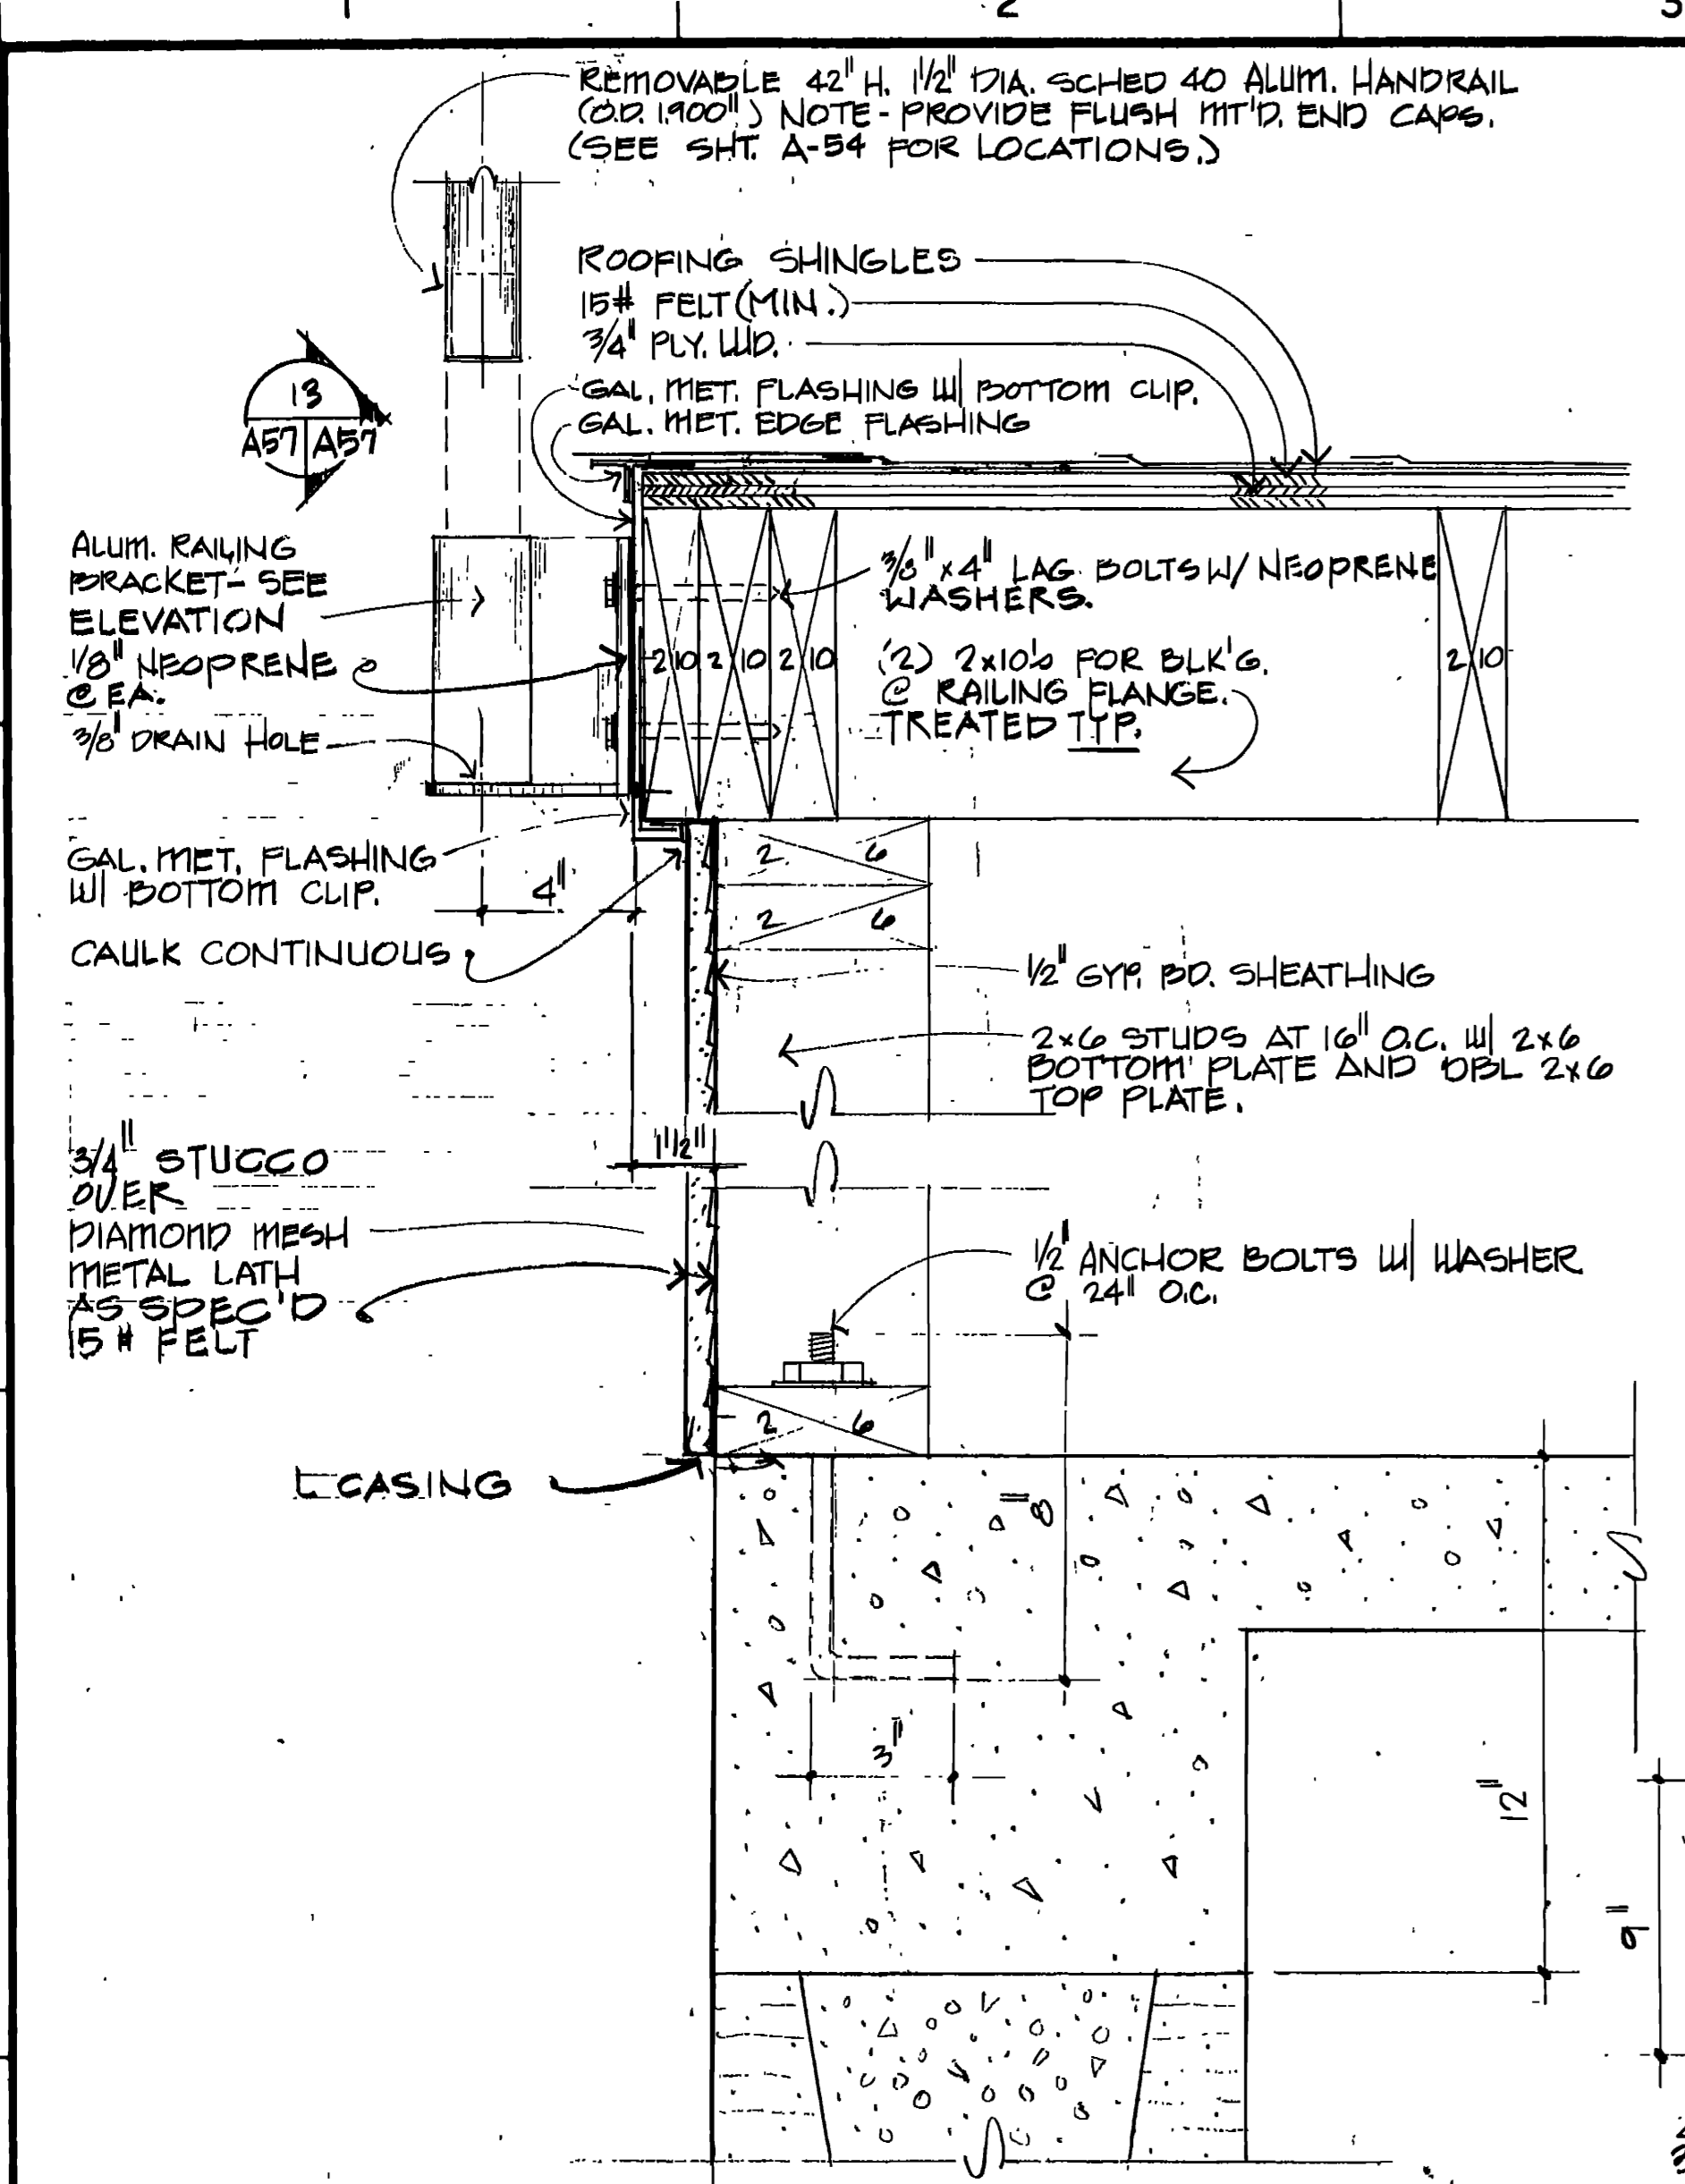 2
3
REMOVABLE 42" H. 1 1/2" DIA. SCHED 40 ALUM. HANDRAIL
(O.D. 1.900") NOTE - PROVIDE FLUSH MT'D. END CAPS.
(SEE SHT. A-54 FOR LOCATIONS.)
ROOFING SHINGLES
15# FELT (MIN.)
3/4" PLY. WD.
GAL. MET. FLASHING W/ BOTTOM CLIP.
GAL. MET. EDGE FLASHING
13
A57 A57
ALUM. RAILING
BRACKET - SEE
ELEVATION
1/8" NEOPRENE
@ EA.
3/8" DRAIN HOLE
3/8" x 4" LAG BOLTS W/ NEOPRENE
WASHERS.
2 10 2 10 2 10
(2) 2x10's FOR BLK'G.
@ RAILING FLANGE.
TREATED TYP.
2 10
GAL. MET. FLASHING
W/ BOTTOM CLIP.
4"
2 6
2 6
CAULK CONTINUOUS
1/2" GYP. BD. SHEATHING
2x6 STUDS AT 16" O.C. W/ 2x6
BOTTOM PLATE AND DBL 2x6
TOP PLATE.
1 1/2"
3/4" STUCCO
OVER
DIAMOND MESH
METAL LATH
AS SPEC'D
15 # FELT
1/2" ANCHOR BOLTS W/ WASHER
@ 24" O.C.
2 6
CASING
8"
3"
12"
9"